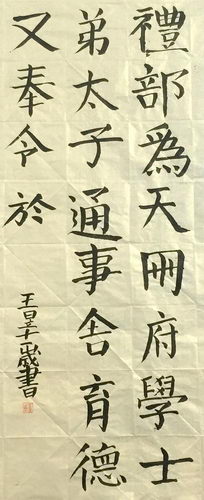 禮部為天冊府學士
弟太子通事舍育德
又奉令於
書